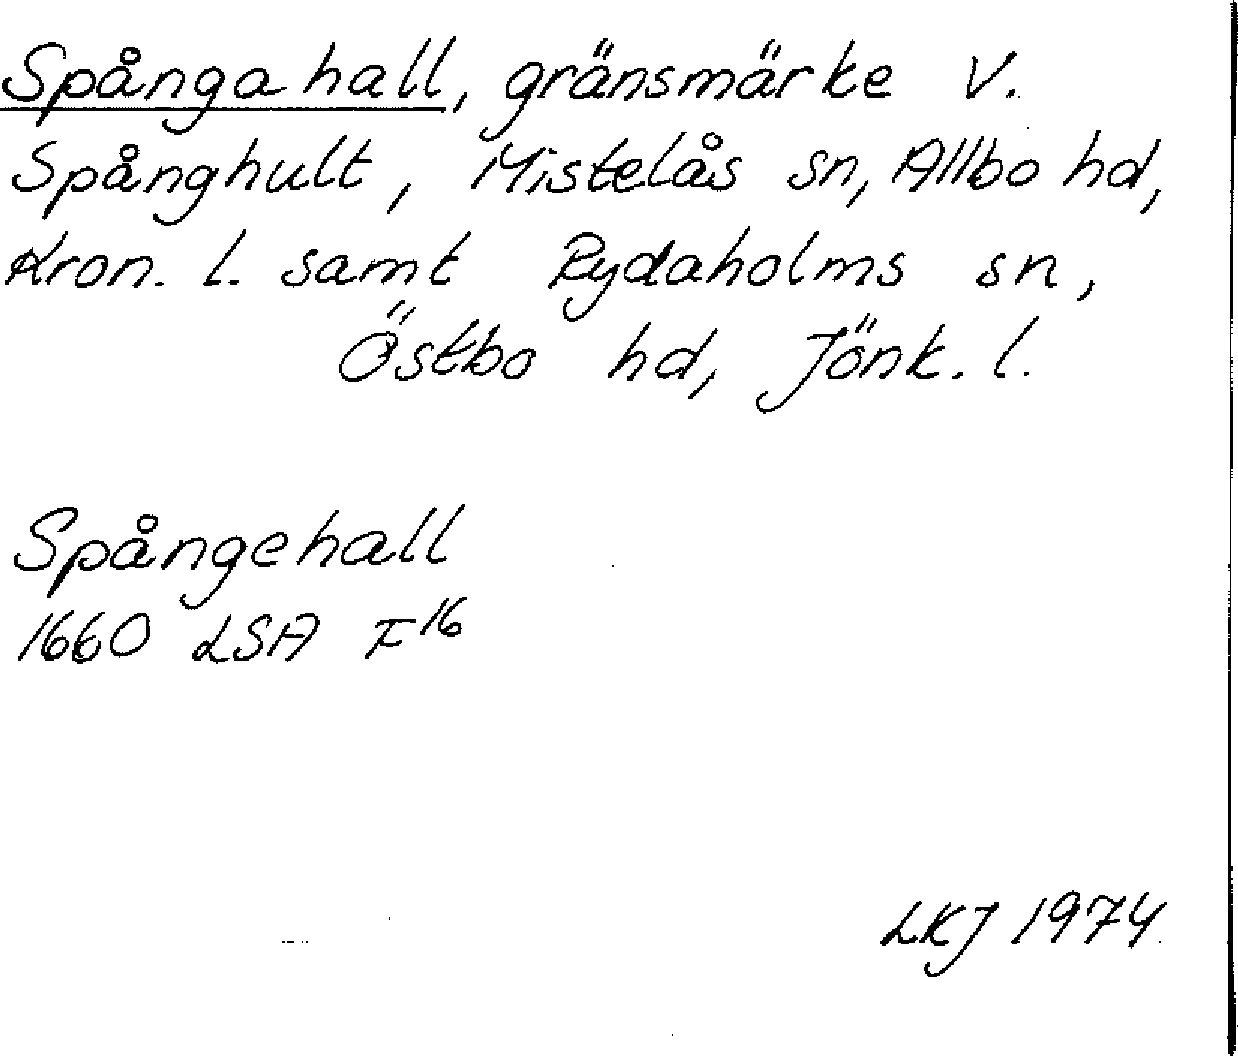 Spångahall, gränsmärke V.
Spånghult, Mistelås sn, Allbo hd,
Kron. l. samt Rydaholms sn,
Östbo hd, Jönk. l.
Spångehall
1660 LSA F16
LKJ 1974